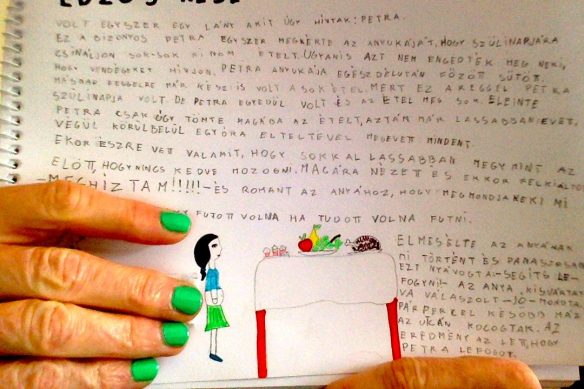 EDZŐS MESE
VOLT EGYSZER EGY LÁNY AKIT ÚGY HÍVTAK: PETRA.
EZ A BIZONYOS PETRA EGYSZER MEGKÉRTE AZ ANYUKÁJÁT, HOGY SZÜLINAPJÁRA
CSINÁLJON SOK-SOK FINOM ÉTELT. UGYANIS AZT NEM ENGEDTÉK MEG NEKI,
HOGY VENDÉGEKET HÍVJON. PETRA ANYUKÁJA EGÉSZ DÉLUTÁN FŐZÖTT SÜTÖTT.
MÁSNAP REGGELRE MÁR KÉSZ IS VOLT A SOK ÉTEL. MERT EZ A REGGEL PETRA
SZÜLINAPJA VOLT. DE PETRA EGYEDÜL VOLT ÉS AZ ÉTEL MEG SOK. ELEINTE
PETRA CSAK ÚGY TÖMTE MAGÁBA AZ ÉTELT, AZTÁN MÁR LASSABBAN EVETT,
VÉGÜL KÖRÜLBELÜL EGY ÓRA ELTELTÉVEL MEGEVETT MINDENT.
EKKOR ÉSZRE VETT VALAMIT, HOGY SOKKAL LASSABBAN MEGY MINT AZ
ELŐTT, HOGY NINCS KEDVE MOZOGNI. MAGÁRA NÉZETT ÉS EKKOR FELKIÁLTOTT
-MEGHÍZTAM!!!!!- ÉS ROHANT AZ ANYÁHOZ, HOGY MEGMONDJA NEKI MI
FUTOTT VOLNA HA TUDOTT VOLNA FUTNI.
ELMESÉLTE AZ ANYÁNAK
MI TÖRTÉNT ÉS PANASZOSAN
EZT NYÁVOGTA:-SEGÍTS LE-
FOGYNI!- AZ ANYA, KISVÁRTAT-
VA VÁLASZOLT -JÓ- MONDTA
PÁR PERCEL KÉSŐBB MÁR
AZ UTCÁN KOCOGTAK. AZ
EREDMÉNY AZ LETT, HOGY
PETRA LEFOGYOTT.